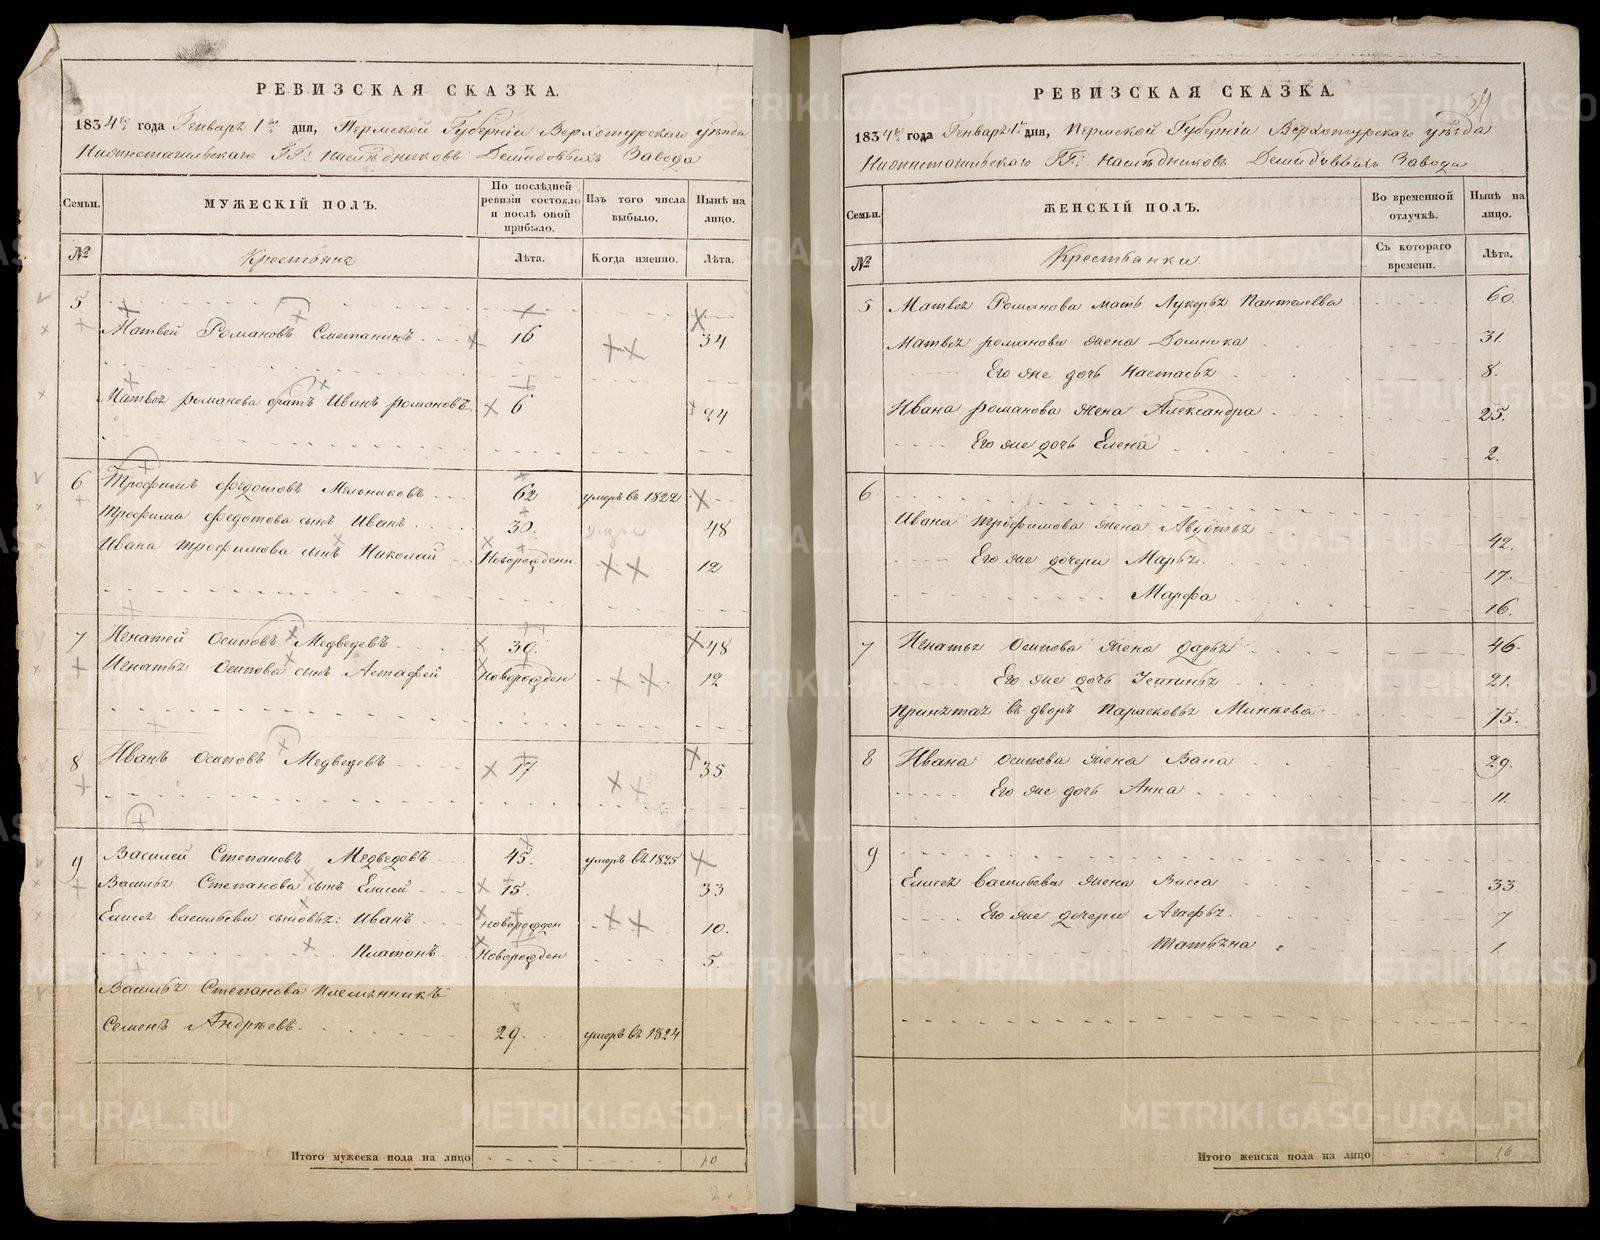 РЕВИЗСКАЯ СКАЗКА.
1834го года Генваря 1го дня, Пермской Губернiи Верхотурского уѣзда
Нижнетагильского ГГ: наслѣдниковъ Демидовыхъ Завода
Семьи.
МУЖЕСКІЙ ПОЛЪ.
По послѣдней ревизіи состояло и послѣ оной прибыло.
Изъ того числа выбыло.
Нынѣ на лицо.
№
Крестьяне
Лѣта.
Когда именно.
Лѣта.
5
Матвей Романовъ Сметанинъ 16 34
Матвея романова братъ Иванъ романовъ 6 24
6 Трофимъ федотовъ Мельниковъ 62 умеръ въ 1822
Трофима федотова сынъ Иванъ 30. 48
Ивана трофимова сынъ Николай Новорожденн 12
7 Игнатей Осиповъ Медведевъ 30. 48
Игнатья Осипова сынъ Астафей Новорожден 12
8 Иванъ осиповъ Медведевъ 17 35
9 Василей Степановъ Медведовъ 45. умеръ въ 1825
Василья Степанова сынъ Елисей 15. 33
Елисея васильева сыновья: Иванъ новорожден 10.
Платонъ Новорожден 5.
Василья Степанова племянникъ
Семенъ Андреевъ 29. умеръ въ 1824
Итого мужеска пола на лицо 10
2.
РЕВИЗСКАЯ СКАЗКА.
1834го года Генваря 1го дня, Пермской Губернiи Верхотурского уѣзда
Нижнетагильскаго ГГ: наслѣдниковъ Демидовыхъ Завода
Семьи.
ЖЕНСКІЙ ПОЛЪ.
Во временной отлучкѣ.
Нынѣ на лицо.
№
Крестьянки
Съ котораго времени.
Лѣта.
5 Матвея Романова мать Лукерья Пантелеева 60.
Матвея романова жена Домника 31
Его же дочь Настасья 8.
Ивана романова жена Александра 25.
Его же дочь Елена 2.
6
Ивана трофимова жена Авдотья 42.
Его же дочери Марья. 17.
Марфа 16.
7 Игнатья Осипова жена дарья 46.
Его же дочь Устинья 21.
Принята въ дворъ Парасковья Минѣева 75.
8 Ивана осипова жена Васса 29.
Его же дочь Анна 11.
9
Елисея васильева жена Васса 33
Его же дочери Агафья. 7
татьяна 1.
Итого женска пола на лицо 16
METRIKI.GASO-URAL.RU